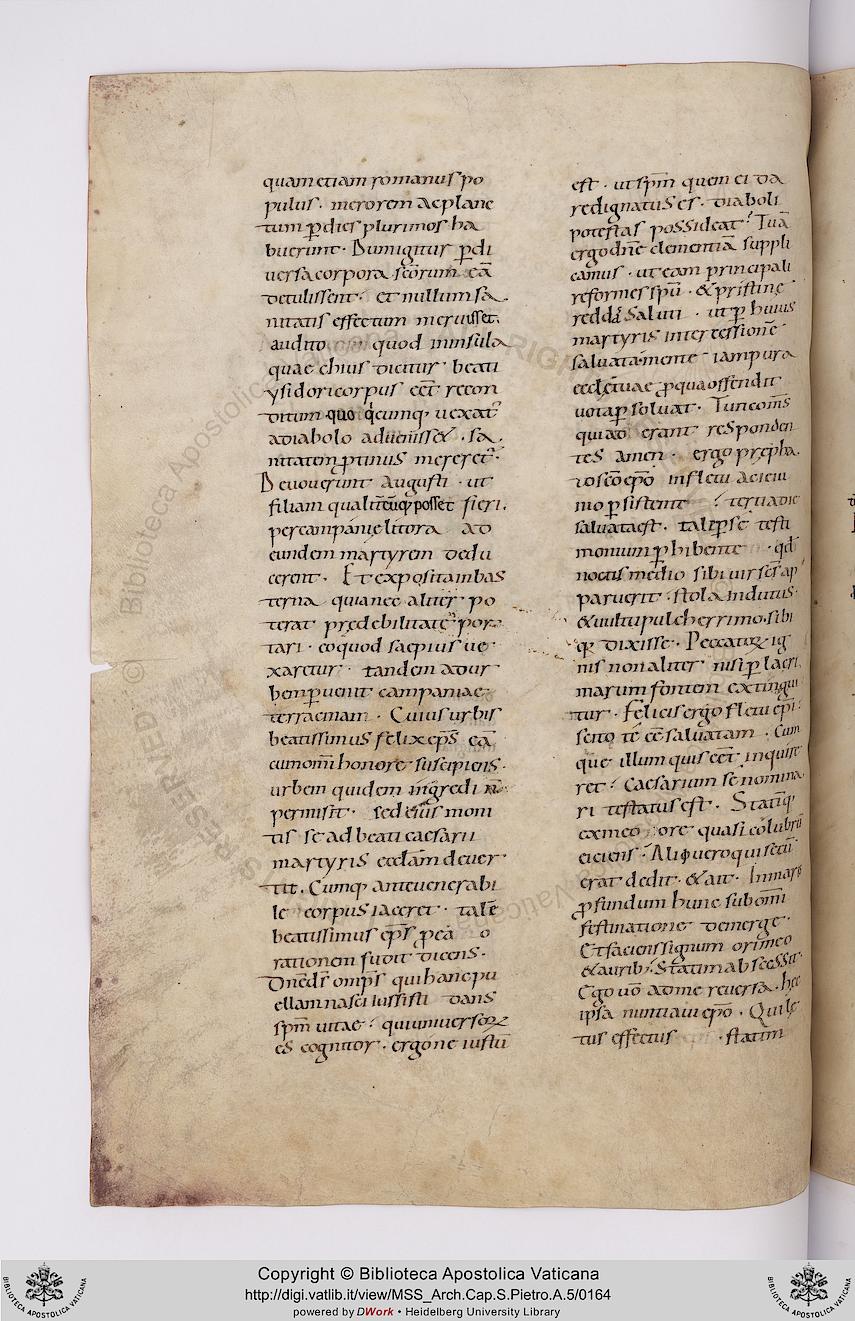 quam etiam romanus po
pulus · merorem ac planc
tum p̄ dies plurimos ha
buerunt · Dum igitur p̄ di
uersa corpora sc̄orum eā
detulissent · et nullum sa
nitatis effectum meruisset
audito quod in insula
quae chius dicitur beati
ysidori corpus eēt recon
ditum quo q̄cumq; uexat᷑
a diabolo aduenisset · sa
nitatem p̄tinus mereret᷑ ·
Deuouerunt augusti · ut
filiam qualitercūq; posset fieri ·
per campaniȩ litora ad
eundem martyrem dedu
cerent · Et exposita in bas
terna quia nec aliter po
terat prȩ debilitate por
tari · eo quod saepius ue
xaretur · tandem ad ur
bem p̄uenit campaniae
terracinam · Cuius urbis
beatissimus felix ep̄s eā
cum om̄i honore suscipiens ·
urbem quidem ingredi n̄
permisit · sed eius moni
tis se ad beati caesarii
martyris eccl̄am deuer
tit · Cumq; ante uenerabi
le corpus iaceret · talē
beatissimus ep̄s p̄ ea o
rationem fudit dicens ·
Dn̄e ds̄ omp̄s qui hanc pu
ellam nasci iussisti dans
sp̄m uitae · qui uniuersoꝝ
es cognitor · ergo ne iustū
est · ut sp̄m quem ei da
re dignatus es · diaboli
potestas possideat · Tuā
ergo dn̄e clementiā suppli
camus · ut eam principali
reformes sp̄u · & pristinȩ
reddas saluti · ut p̄ huius
martyris intercessionē
saluata mente iam pura
eccl̄e tuae p̄ qua offendit
uota p̄soluat · Tunc om̄s
qui ad erant responden
tes amen · ergo prȩpha
to sc̄o ep̄o in fletu ac ieiu
nio p̄sistente · tertia die
saluata est · tale p̄ se testi
monium p̄hibente · qđ
noctis medio sibi uir sc̄s ap
paruerit · stola indutus
& uultu pulcherrimo · sibi
q; dixisse · Peccatoꝝ ig
nis non aliter nisi p̄ lacri
marum fontem extingui
tur · Felicis ergo fletu ep̄i
scito te eē saluatam · Cum
que illum quis eēt inquire
ret · caesarium se nomina
ri testatus est · Statīq;
ex meo ore quasi colubrū
eiciens · Alii uero qui secū
erat dedit · & ait · In mare
p̄fundum hunc sub om̄i
festinatione demerge
Et faciens signum ori meo
& aurib; · Statim abscessit ·
Ego uō ad me reuersa · hec
ipsa nuntiaui ep̄o · Qui lȩ
tus effectus · statim
Copyright © Biblioteca Apostolica Vaticana
http://digi.vatlib.it/view/MSS_Arch.Cap.S.Pietro.A.5/0164
powered by DWork • Heidelberg University Library